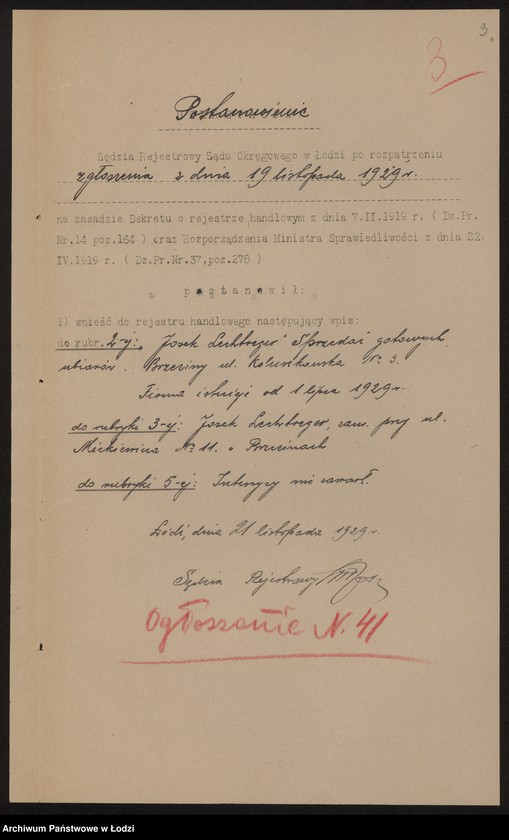 3
3
Postanowienie
Sędzia Rejestrowy Sądu Okręgowego w Łodzi po rozpatrzeniu
zgłoszenia z dnia 19 listopada 1929 r.
na zasadzie Dekretu o rejestrze handlowym z dnia 7.II.1919 r. ( Dz.Pr.
Nr.14 poz.164 ) oraz Rozporządzenia Ministra Sprawiedliwości z dnia 22.
IV.1919 r. ( Dz.Pr.Nr.37,poz.276 )
p o s t a n o w i ł :
1) wnieść do rejestru handlowego następujący wpis:
do rubr. 2-ej: "Josek Lechtreger" Sprzedaż gotowych
ubiorów. Brzeziny ul. Kościuszkowska № 3.
Firma istnieje od 1 lipca 1929 r.
do rubryki 3-ej: Josek Lechtreger, zam. przy ul.
Mickiewicza № 11. w Brzezinach
do rubryki 5-ej: Intercyzy nie zawarł.
Łódź, dnia 21 listopada 1929 r.
Sędzia Rejestrowy
Ogłoszenie N. 41
Archiwum Państwowe w Łodzi